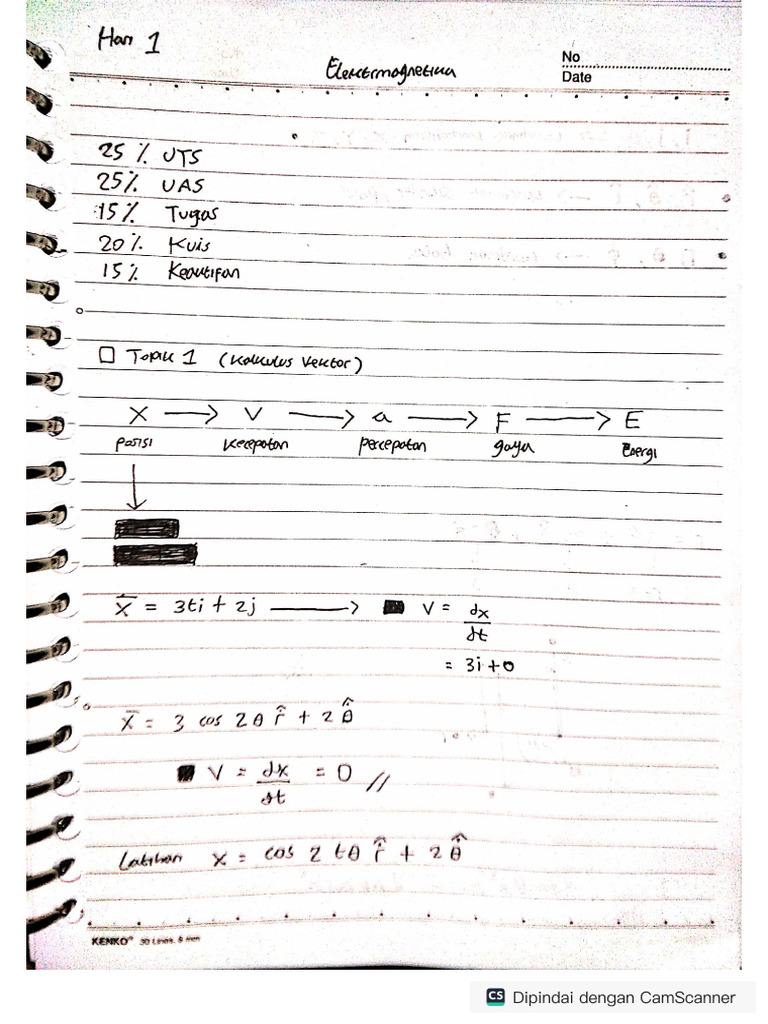 Hari 1
Elektromagnetika
No
Date
25 % UTS
25% UAS
15% Tugas
20% Kuis
15% Keaktifan
□ Topik 1 (Kalkulus Vektor)
X → V → a → F → E
posisi kecepatan percepatan gaya Energi
x̄ = 3ti + 2j → V = dx/dt
= 3i + 0
x̄ = 3 cos 2θ r̂ + 2 θ̂
V = dx/dt = 0 //
Latihan x = cos 2 tθ r̂ + 2 θ̂
KENKO® 30 Lines, 8 mm
CS Dipindai dengan CamScanner